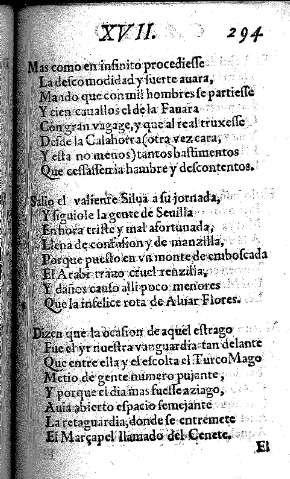 XVII. 294
Mas como en infinito procediesse
La descomodidad y suerte auara,
Mando que con mil hombres se partiesse
Y cien cauallos el de la Fauara
Con gran vagage, y que al real truxesse
Desde la Calahorra (otra vez cara,
Y esta no menos) tantos bastimentos
Que cessassen la hambre y descontentos.
Salio el valiente Silua a su jornada,
Y siguiole la gente de Seuilla
En hora triste y mal afortunada,
Llena de confusion y de manzilla,
Porque puesto en vn monte de emboscada
El Arabi trazo cruel renzilla,
Y daños causo alli poco menores
Que la infelice rota de Aluar Flores.
Dizen que la ocasion de aquel estrago
Fue el yr nuestra vanguardia tan delante
Que entre ella y el escolta el Turco Mago
Metio de gente numero pujante,
Y porque el dia mas fuesse aziago,
Auia abierto espacio semejante
La retaguardia, donde se entremete
El Marçapel llamado del Cenete.
El